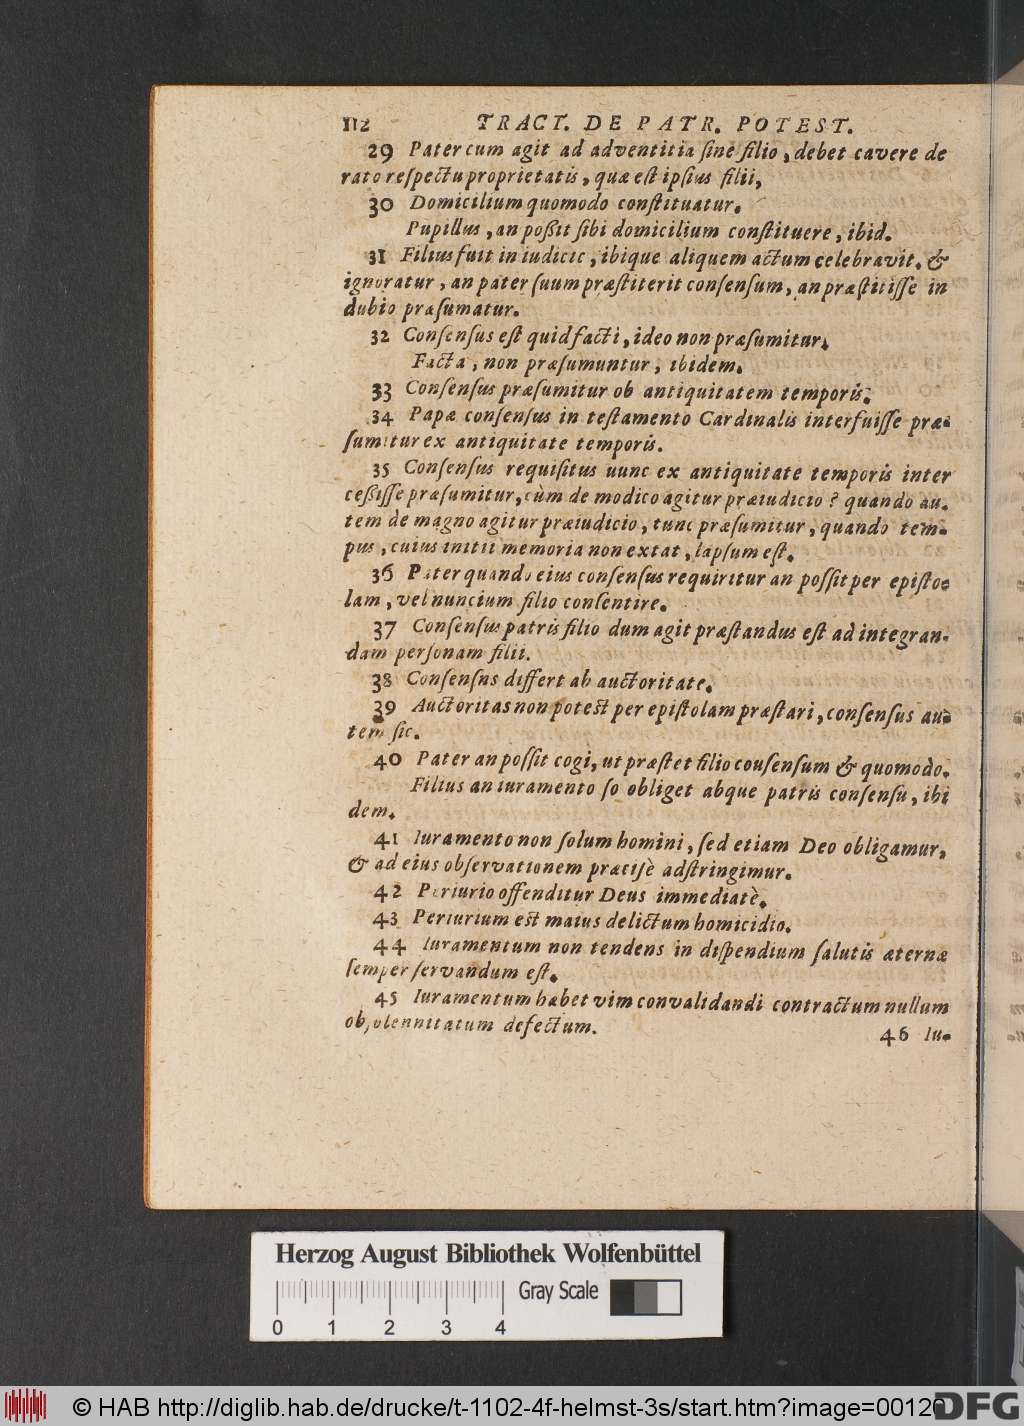 112 TRACT. DE PATR. POTEST.
29 Pater cum agit ad adventitia ſine filio, debet cavere de
rato reſpectu proprietatis, quæ eſt ipſius filii,
30 Domicilium quomodo conſtituatur.
Pupillus, an poßit ſibi domicilium conſtituere, ibid.
31 Filius fuit in iudicic, ibique aliquem actum celebravit. &
ignoratur, an pater ſuum præſtiterit conſenſum, an præſtitiſſe in
dubio præſumatur.
32 Conſenſus eſt quid facti, ideo non præſumitur.
Facta, non præſumuntur, ibidem.
33 Conſenſus præſumitur ob antiquitatem temporis.
34 Papæ conſenſus in teſtamento Cardinalis interfuiſſe præ-
ſumitur ex antiquitate temporis.
35 Conſenſus requiſitus uunc ex antiquitate temporis inter
ceßiſſe præſumitur, cùm de modico agitur præiudicio? quando au-
tem de magno agitur præiudicio, tunc præſumitur, quando tem-
pus, cuius initii memoria non extat, lapſum eſt.
36 Pater quando eius conſenſus requiritur an poſſit per epiſto-
lam, vel nuncium filio conſentire.
37 Conſenſus patris filio dum agit præſtandus eſt ad integran-
dam perſonam filii.
38 Conſenſns differt ab auctoritate.
39 Auctoritas non potest per epiſtolam præſtari, conſenſus au-
tem ſic.
40 Pater an poſſit cogi, ut præſtet filio couſenſum & quomodo.
Filius an iuramento ſo obliget abque patris conſenſu, ibi
dem.
41 Iuramento non ſolum homini, ſed etiam Deo obligamur,
& ad eius obſervationem præciſè adſtringimur.
42 Periurio offenditur Deus immediatè.
43 Periurium est maius delictum homicidio.
44 Iuramentum non tendens in diſpendium ſalutis æternæ
ſemper ſervandum eſt.
45 Iuramentum habet vim convalidandi contractum nullum
ob ſolennitatum defectum.
46 Iu-
Herzog August Bibliothek Wolfenbüttel
Gray Scale
0 1 2 3 4
© HAB http://diglib.hab.de/drucke/t-1102-4f-helmst-3s/start.htm?image=00120
DFG